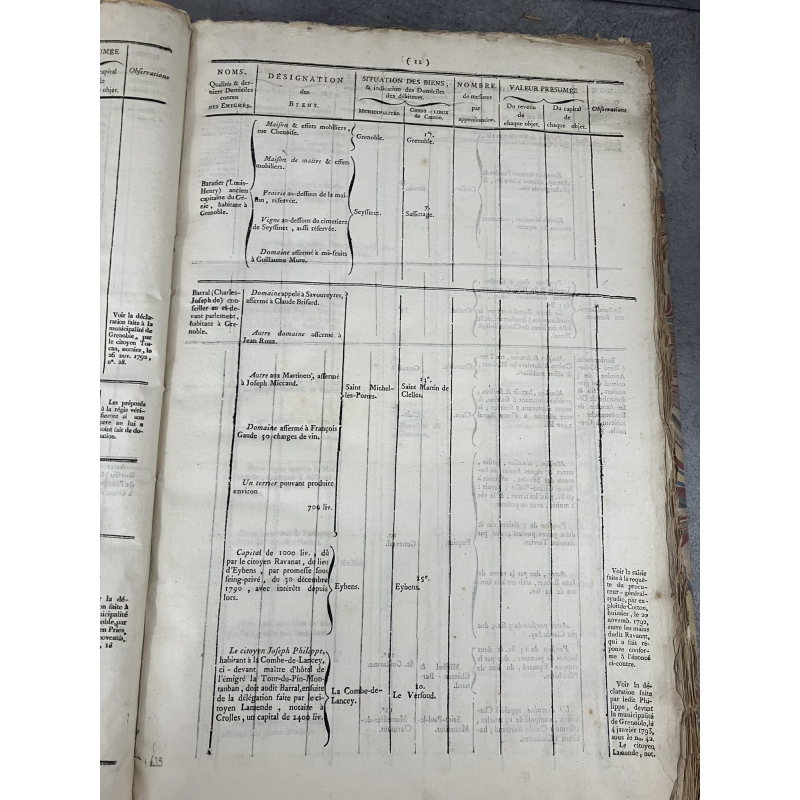 UMÉE
apital
de
objet.
Observations
Voir la décla-
ration faite à la
municipalité de
Grenoble, par
le citoyen
notaire, le
26 nov. 1792,
n°. 28.
Les préposés
à la régie véri-
fieront si son
pere ne lui a
point fait de do-
nation.
( 12 )
NOMS,
Qualités & der-
niers Domiciles
connus
DES ÉMIGRÉS.
DÉSIGNATION
des
BIENS.
SITUATION DES BIENS,
& indication des Domiciles
des débiteurs.
MUNICIPALITÉS.
CHEFS-LIEUX
de Canton.
NOMBRE
de mesures
par
approximation.
VALEUR PRÉSUMÉE
Du revenu
de
chaque objet.
Du capital
de
chaque objet.
Observations
Baratier (Louis-
Henry) ancien
capitaine du Gé-
nie, habitant à
Grenoble.
Maison & effets mobiliers,
rue Chenoise.
Grenoble.
1er.
Grenoble.
Maison de maître & effets
mobiliers.
Prairie au-dessous de la mai-
son, réservée.
Vigne au-dessous du cimetiere
de Seyssinet, aussi réservée.
Domaine affermé à mi-fruits
à Guillaume Mure.
Seyssinet.
7.
Sassenage.
Barral (Charles-
Joseph de) con-
seiller au ci-de-
vant parlement,
habitant à Gre-
noble.
Domaine appelé à Savoureyres,
affermé à Claude Brifard.
Autre domaine affermé à
Jean Roux.
Autre aux Martinets, affermé
à Joseph Miccaud.
Domaine affermé à François
Gaude 50 charges de vin.
Un terrier pouvant produire
environ
700 liv.
Saint Michel-
les-Portes.
13e.
Saint Martin de
Clelles.
Capital de 1000 liv., dû
par le citoyen Ravanat, du lieu
d'Eybens, par promesse sous
seing-privé, du 30 décembre
1790, avec intérêts depuis
lors.
Eybens.
15e.
Eybens.
Voir la saisie
faite à la requê-
te du procu-
reur-général-
syndic, par ex-
ploit de Cotton,
huissier, le 20
novemb. 1792,
entre les mains
dudit Ravanat,
qui a fait ré-
ponse confor-
me à l'énoncé
ci-contre.
Le citoyen Joseph Philippe,
habitant à la Combe-de-Lancey,
ci-devant maître d'hôtel de
l'émigré la Tour-du-Pin-Mon-
tauban, doit audit Barral, ensuite
de la délégation faite par le ci-
toyen Lamende, notaire à
Crolles, un capital de 2400 liv.
La Combe-de-
Lancey.
10.
Le Versoud.
Voir la dé-
claration faite
par ledit Phi-
lippe, devant
la municipalité
de Grenoble, le
4 janvier 1793,
sous le no. 42.
Le citoyen
Lamende, not.